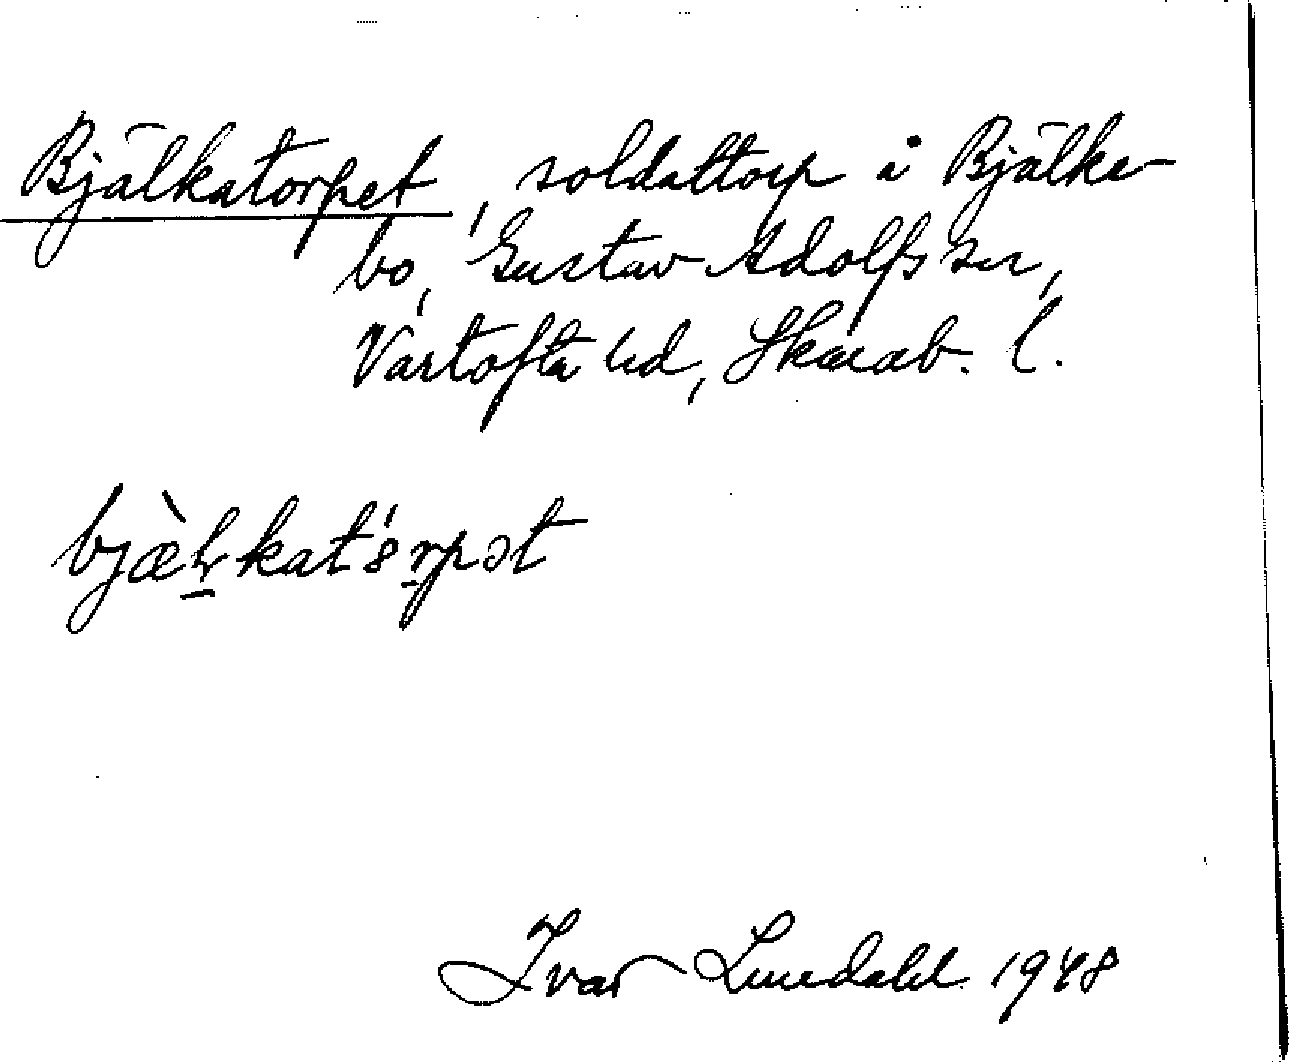 Bjälkatorpet, soldattorp i Bjälke-
bo, Gustav Adolfs sn,
Vartofta hd, Skarab. l.
Ivar Lundahl 1948